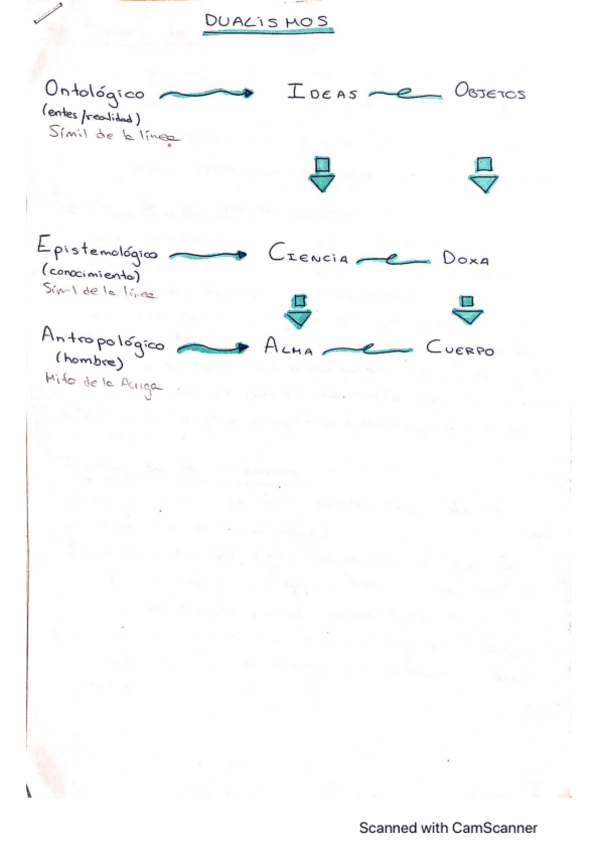 DUALISMOS
Ontológico IDEAS OBJETOS
(entes/realidad)
Símil de la línea
Epistemológico CIENCIA DOXA
(conocimiento)
Símil de la línea
Antropológico ALMA CUERPO
(hombre)
Mito de la Auriga
Scanned with CamScanner